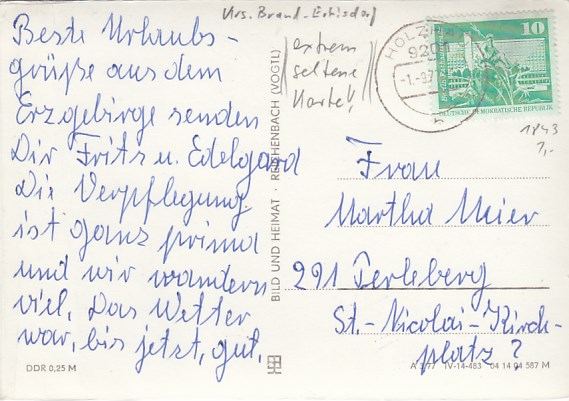 Beste Urlaubs-
grüße aus dem
Erzgebirge senden
Dir Fritz u. Edelgard
Die Verpflegung
ist ganz prima
und wir wandern
viel. Das Wetter
war, bis jetzt, gut.
DDR 0,25 M
extrem
seltene
Karte!
BILD UND HEIMAT · REICHENBACH (VOGTL)
10
DEUTSCHE DEMOKRATISCHE REPUBLIK
1843
Frau
Martha Meier
291 Perleberg
St.-Nicolai-Kirch-
platz 7
A 3/77 IV-14-483 04 14 04 567 M